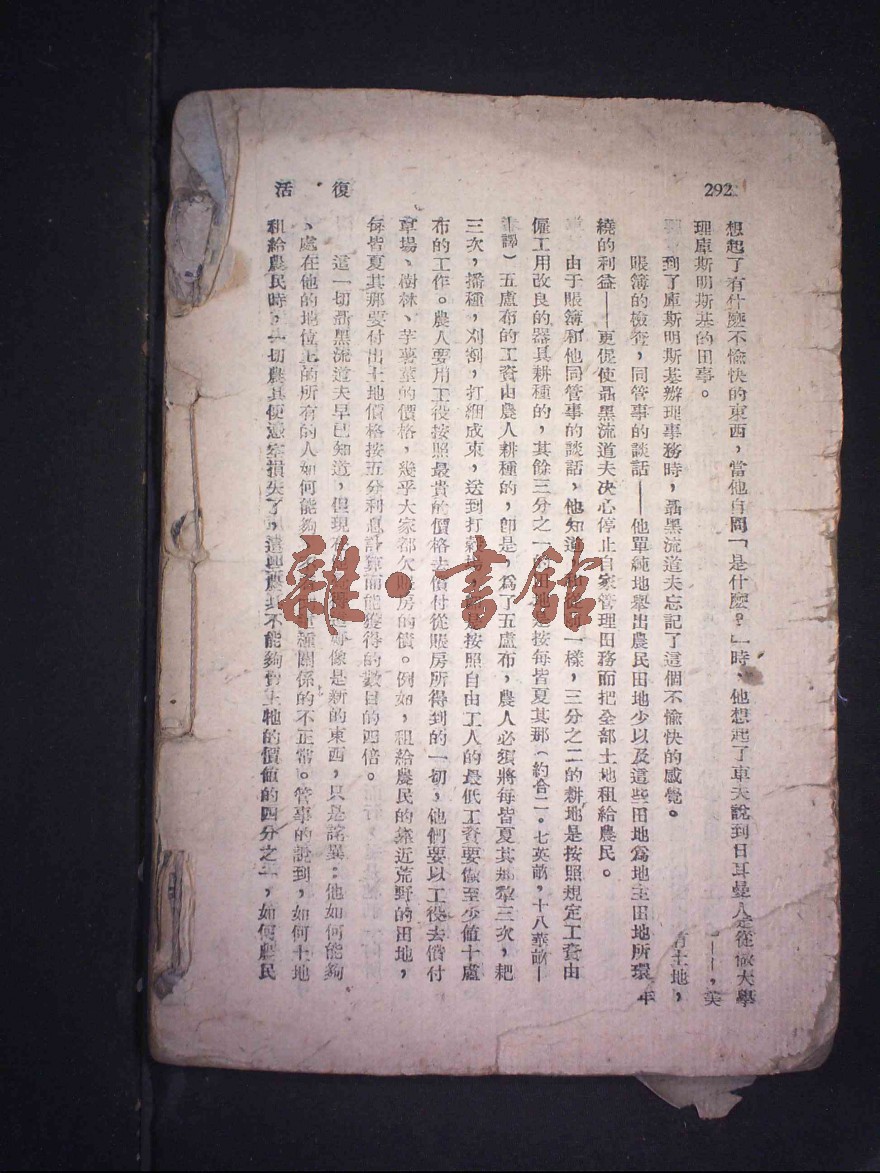 292
復活
想起了有什麽不愉快的東西，當他自問「是什麽？」時，他想起了車夫說到日耳曼人是從做大學
——，笑
理庫斯明斯基的田事。
有土地，
到了庫斯明斯基辦理事務時，聶黑流道夫忘記了這個不愉快的感覺。
賬簿的檢查，同管事的談話——他單純地舉出農民田地少以及這些田地爲地主田地所環
繞的利益——更促使聶黑流道夫决心停止自家管理田務而把全部土地租給農民。
由于賬簿和他同管事的談話，他知道，一樣，三分之二的耕地是按照規定工資由
僱工用改良的器具耕種的，其餘三分之一的田地是按每皆夏其那（約合二·七英畝，十八華畝—
—譯）五盧布的工資由農人耕種的，卽是，爲了五盧布，農人必須將每皆夏其那犂三次，耙
三次，播種，刈割，打綑成束，送到打穀場，是按照自由工人的最低工資要做至少値十盧
布的工作。農人要用工役按照最貴的價格去償付從賬房所得到的一切，他們要以工役去償付
草場、樹林、芋薯葉的價格，幾乎大家都欠賬房的債。例如，租給農民的靠近荒野的田地，
每皆夏其那要付出土地價格按五分利息計算而能獲得的數目的四倍。
這一切聶黑流道夫早已知道，但現在像是新的東西，只是詫異：他如何能夠
、處在他的地位上的所有的人如何能夠種關係的不正常。管事的說到，如何土地
租給農民時，一切農具便憑空損失了，這些農具不能夠賣上牠的價値的四分之一，如何農民
雜·書館